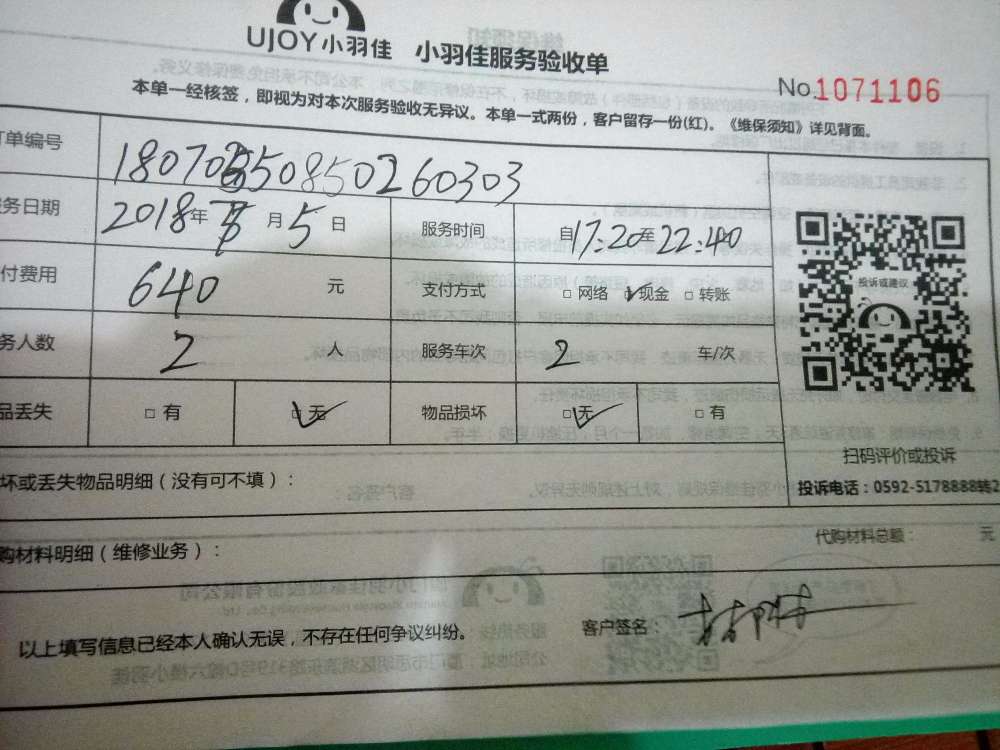 UJOY小羽佳 小羽佳服务验收单
No.1071106
本单一经核签，即视为对本次服务验收无异议。本单一式两份，客户留存一份(红)。《维保须知》详见背面。
订单编号
服务日期 2018年 月5日 服务时间 自17:20至22:40
付费用 640 元 支付方式 □ 网络 ☑现金 □ 转账
投诉或建议
务人数 2 人 服务车次 2 车/次
品丢失 □ 有 ☑无 物品损坏 ☑无 □ 有
扫码评价或投诉
坏或丢失物品明细（没有可不填）：
投诉电话：0592-5178888转2
购材料明细（维修业务）： 代购材料总额： 元
以上填写信息已经本人确认无误，不存在任何争议纠纷。 客户签名：